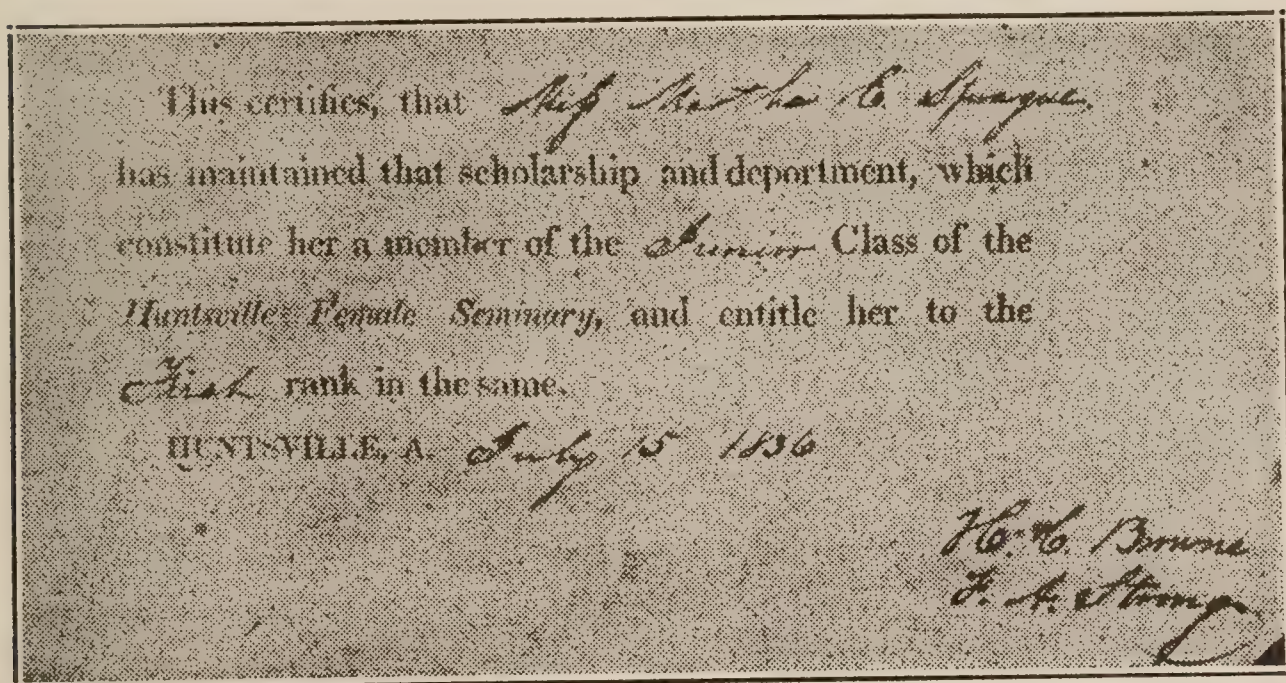 This certifies, that Miss Martha C. Sprague.
has maintained that scholarship and deportment, which
constitute her a member of the Junior Class of the
Huntsville Female Seminary, and entitle her to the
First rank in the same.
HUNTSVILLE, A. July 15 1836
H. C. Browne
F. A. Strong